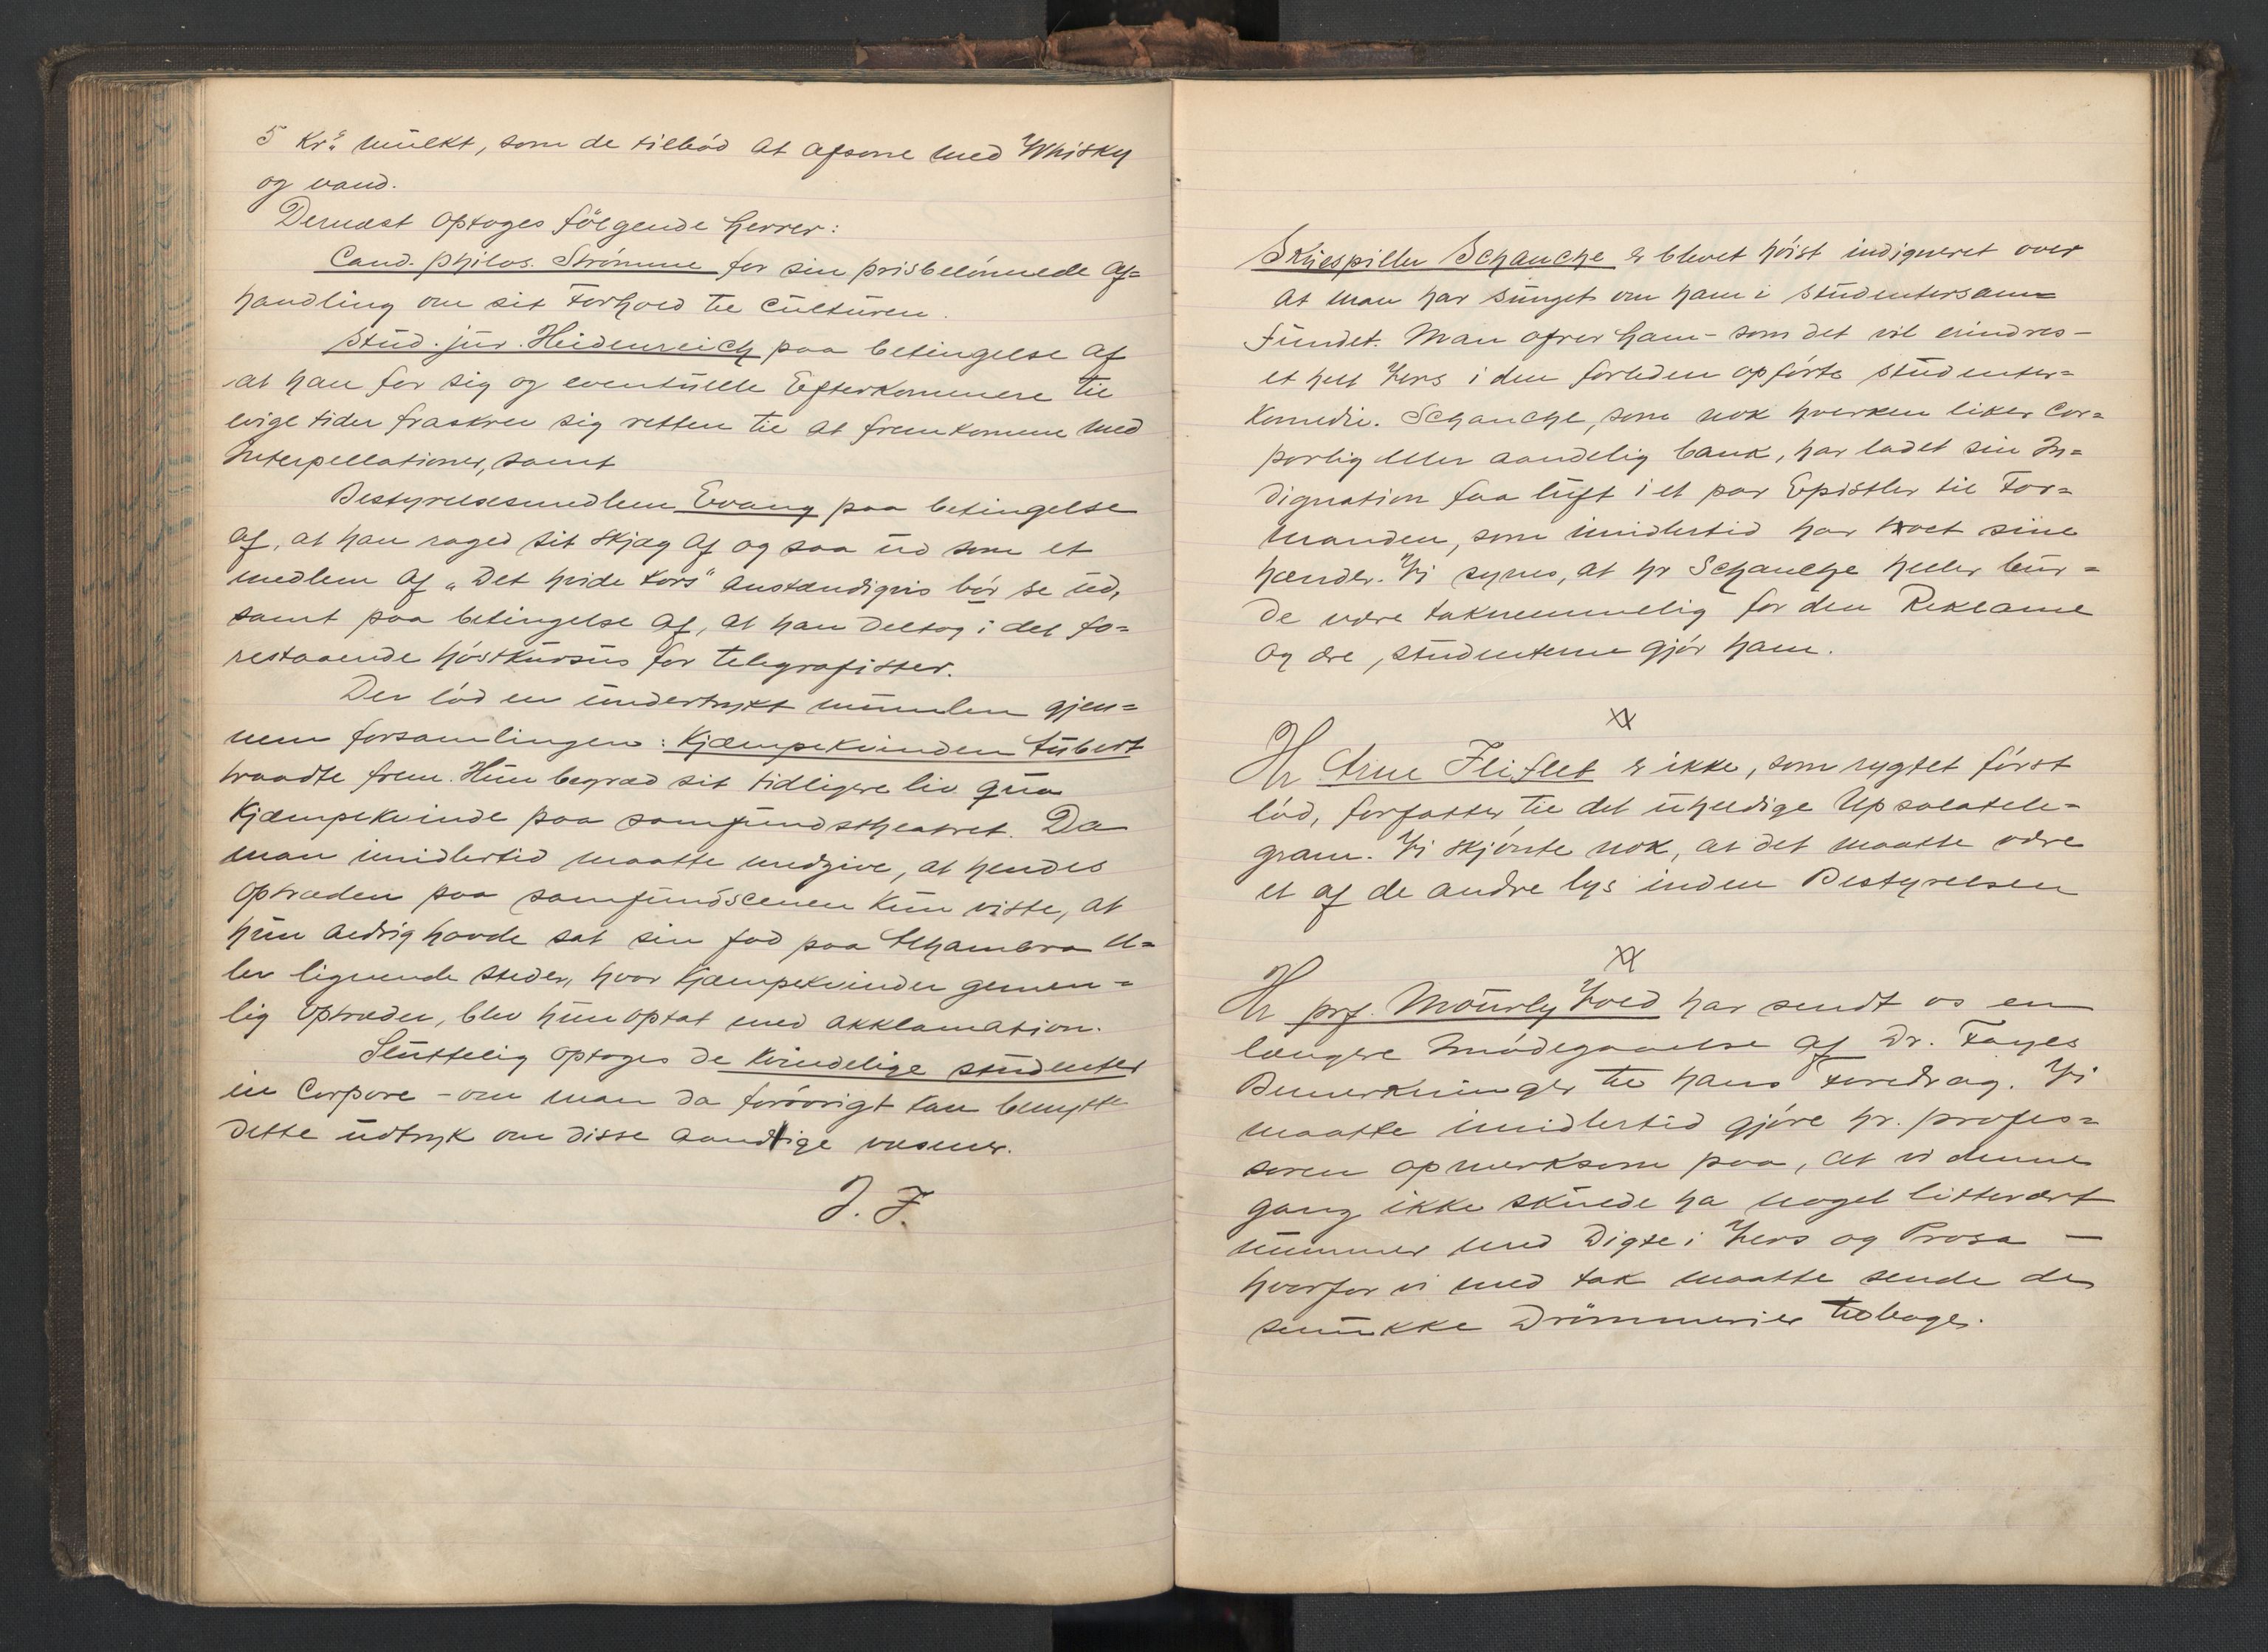 5 Kr. mulkt, som de tilbød at afsone med Whisky
og vand.
Dernæst optoges følgende Herrer:
Cand. philos. Strømme for sin prisbelønnede Af=
handling om sit Forhold til Culturen.
Stud. jur. Heidenreich paa betingelse af
at han for sig og eventuelle Efterkommere til
evige tider fraskrev sig retten til at fremkomme med
Interpellationer, samt
Bestyrelsesmedlem Evang paa betingelse
af, at han raged sit skjæg af og saa ud som et
medlem af "Det hvide Kors" anstændigvis bør se ud,
samt paa betingelse af, at han deltog i det fo=
restaaende høstkursus for telegrafister.
Der lød en undertrykt mumlen gjen=
nem forsamlingen: Kjæmpekvinden Aubert
traadte frem. Hun begræd sit tidligere liv qua
Kjæmpekvinde paa samfundstheatret. Da
man imidlertid maatte medgive, at hendes
optræden paa samfundscenen kun viste, at
hun aldrig havde sat sin fod paa Alhambra el=
ler lignende steder, hvor Kjæmpekvinder gemen=
lig optræder, blev hun optat med akklamation.
Sluttelig optoges de kvindelige studenter
in Corpore - om man da forøvrigt kan benytte
dette udtryk om disse aandige væsener.
J. F.
Skuespiller Schanche er blevet høist indigneret over
at man har sunget om ham i studentersam=
fundet. Man ofrer ham - som det vil erindres -
et helt Vers i den forleden opførte Studenter=
komedie. Schanche, som nok hverken liker Cor=
porlig eller aandelig bank, har ladet sin In=
dignation faa luft i et par Epistler til For=
manden, som imidlertid har toet sine
hænder. Vi synes, at hr Schanche heller bur=
de være taknemmelig for den Reklame
og ære, studenterne gjør ham.
XX
Hr Arne Fliflet er ikke, som rygtet først
lød, forfatter til det uheldige Upsalatele=
gram. Vi skjønte nok, at det maatte være
et af de andre lys inden Bestyrelsen
XX
Hr prf. Mourly Vold har sendt os en
længere Imødegaaelse af Dr. Fayes
Bemerkninger til hans Foredrag. Vi
maatte imidlertid gjøre hr. profes=
soren opmerksom paa, at vi denne
gang ikke skulde ha noget litterært
nummer med Digte i Vers og Prosa -
hvorfor vi med tak maatte sende de
smukke Drømmerier tilbage.